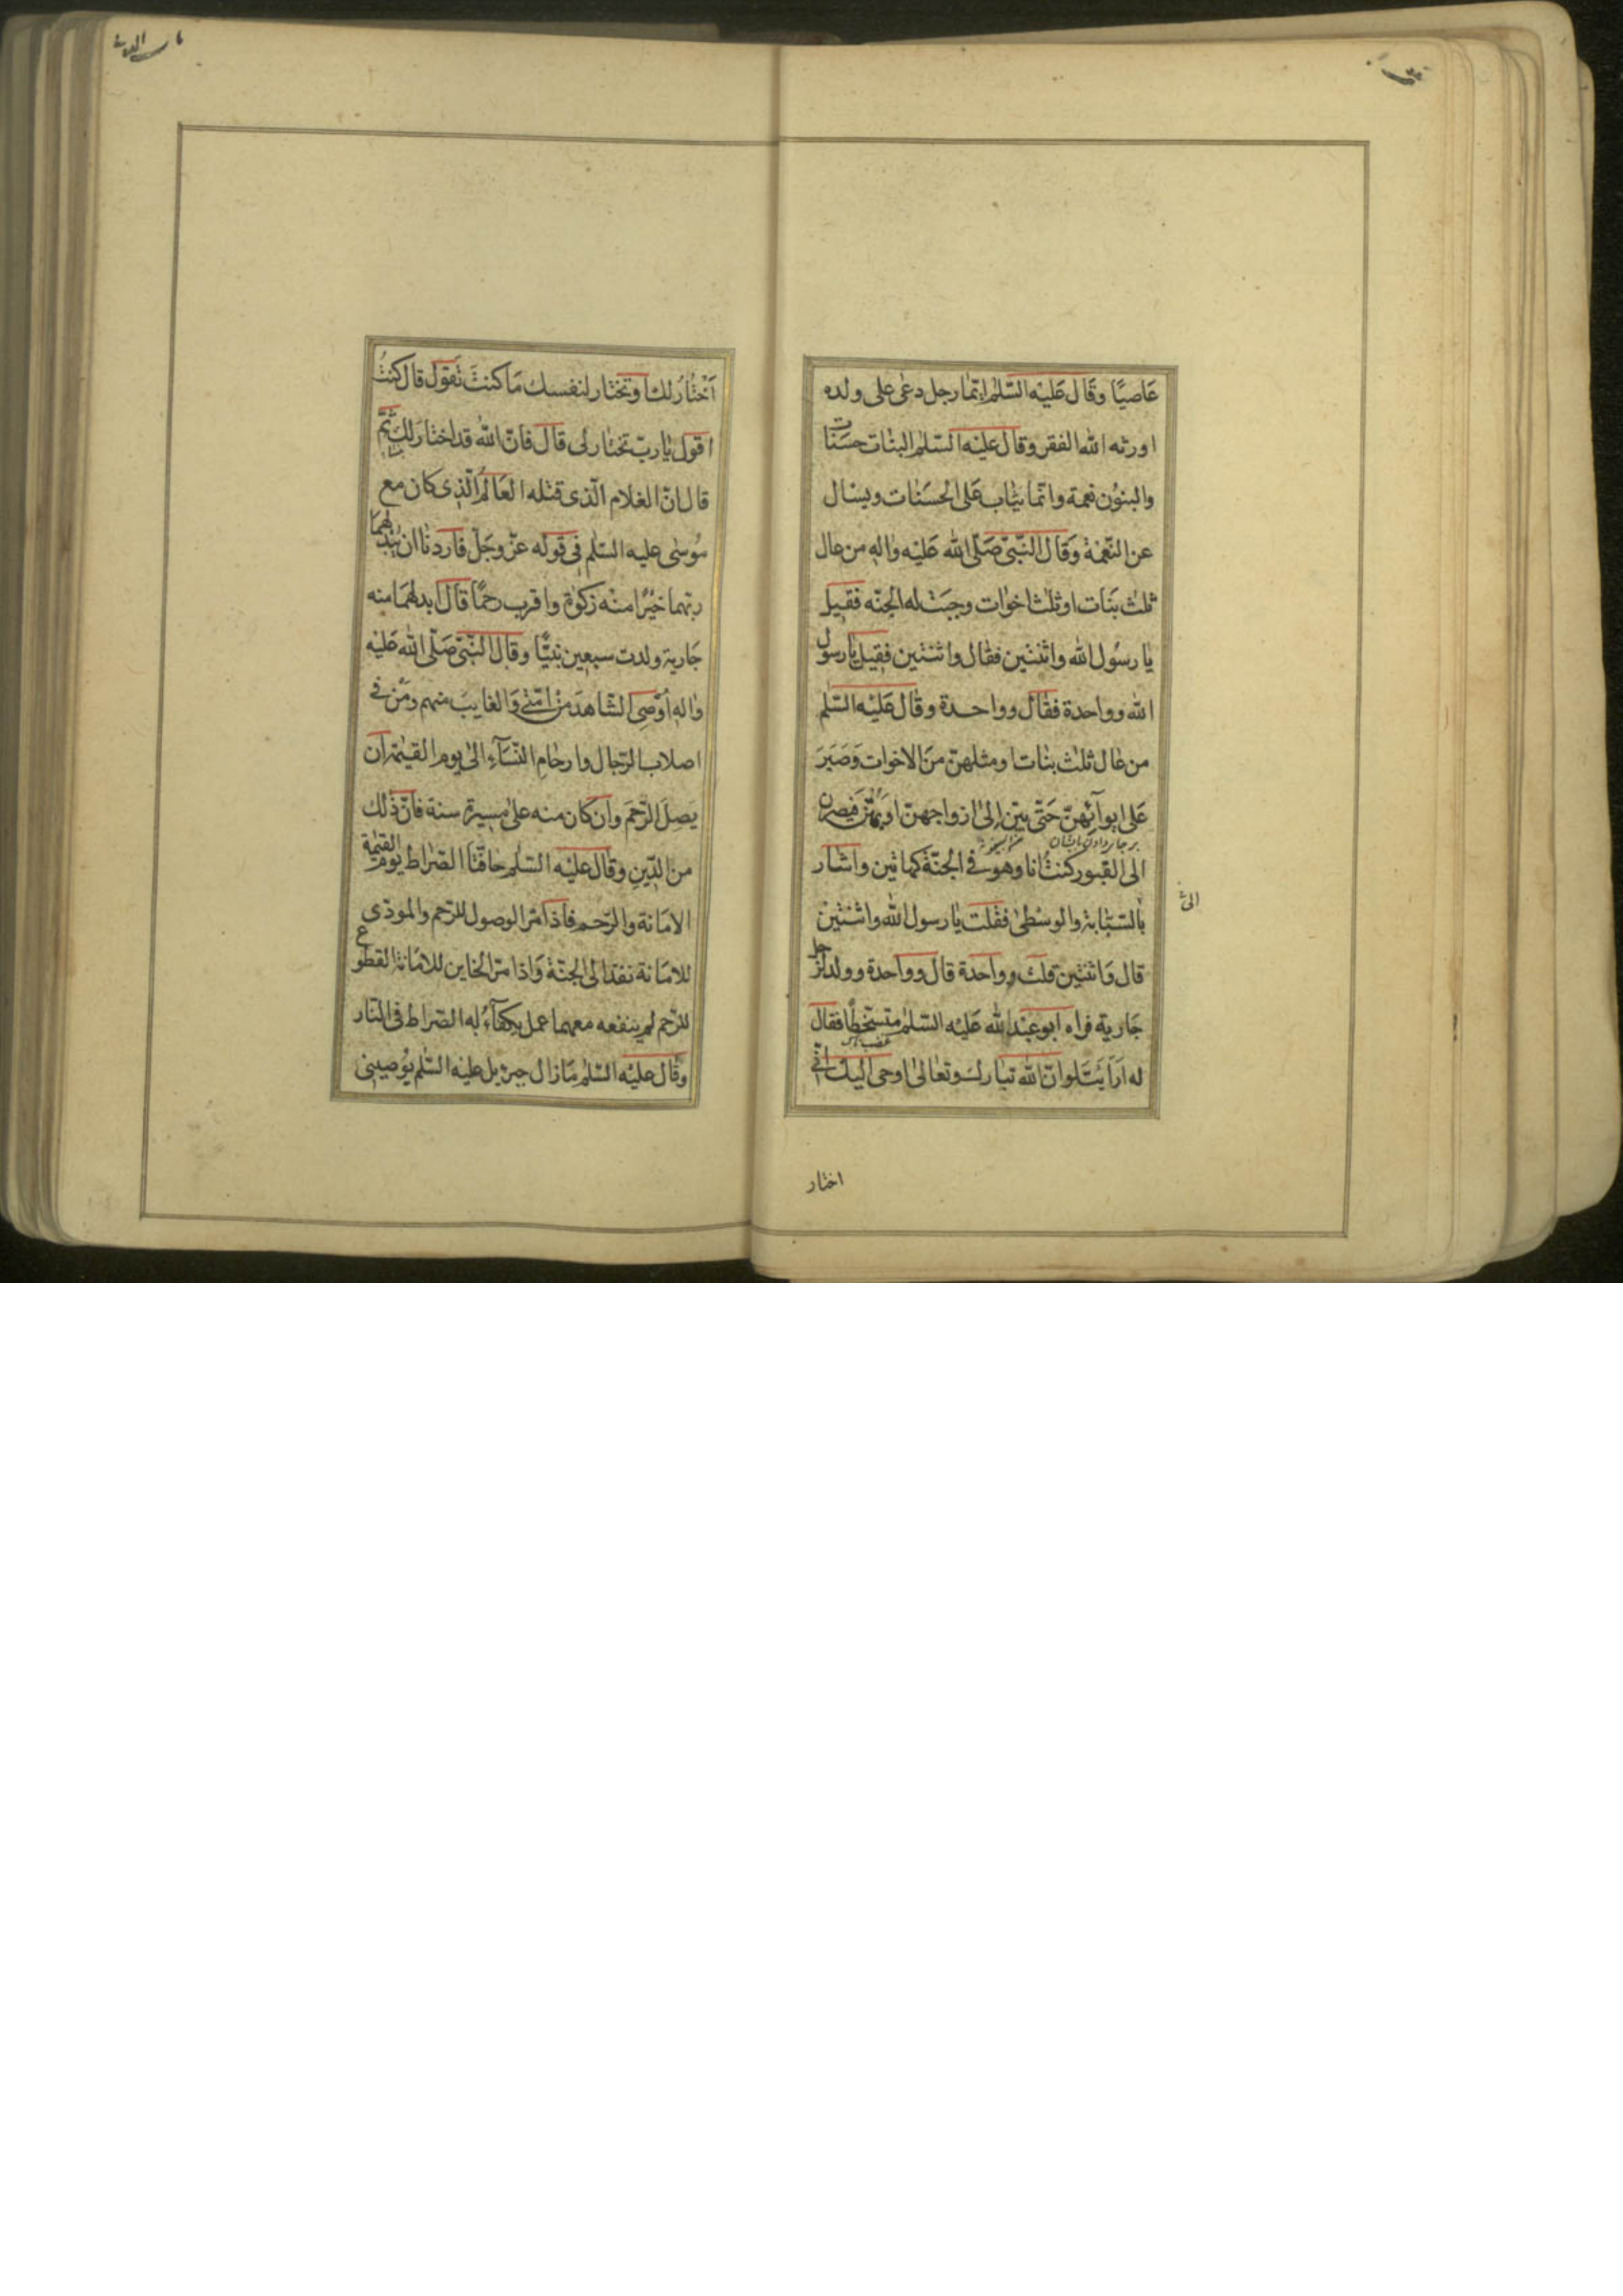 عَاصيًا وقَال عَليْه السّلم ايّما رجل دعٰى على ولده
اورثه الله الفقر وقال عليْه السّلم البنات حسَنات
والبنوُن نعمة وانّما يثاب عَلى الحسَنات ويسٔال
عن النّعْمة وَقَال النّبىّ صَلّى الله عَليْه واٰله من عال
ثلث بَنَات او ثلث اخوات وجبَت له الجنّه فقيل
يا رسُول الله واثنتين فقال واثنتين فقيل يا رسول
الله وواحدة فقال وواحدة وقال عَليْه السّلم
من عال ثلث بنات او مثلهنّ منَ الاخوات وَصَبَرَ
عَلى ايوآئهنّ حَتّى يبنّ الى ازواجهنّ او يمُتْن فيصرن
الى القبور كنتُ انا وهو فى الجنّة كهاتين واشار
بالسّبّابة والوسْطىٰ فقلت يا رسول الله واثنتيْن
قال وَاثنتين قلت وواحدة قال وواحدة وولد لرجل
جَارية فراه ابو عبْد الله عَليْه السّلم متسخّطًا فقال
له اَرَاَيتَ لو انّ الله تبارك وتعالىٰ اوحى اليك انّى
اختار
اَخْتَارُ لك او تختار لنفسك مَا كنتَ تقول قال كنتُ
اقول يا ربّ تختار لى قال فانّ الله قد اختار لك ثمّ
قال انّ الغلام الّذى قتله العَالمُ الّذى كان مع
مُوسٰى عليه السّلم فى قوله عزّ وجَلّ فاَردنا ان يبْدلهمَا
ربّهما خيْرًا منْه زكوٰة واقرب رحمًا قَال ابدلهمَا منه
جَارية ولدت سبعين نبيًّا وقال النّبىّ صَلّى الله عَليْه
واٰله اُوْصِى الشّاهدَ منْ امّتى وَالغايبَ منهم ومَن فى
اصلاب الرّجال وارحام النّسَآءِ الىٰ يوم القيٰمة ان
يَصلَ الرّحمَ وان كان منه على مسيرة سنة فانّ ذٰلك
من الدّين وقال عليْه السّلم حافّتا الصّراط يوم القيٰمة
الامَانة والرّحم فاذا مرّ الوصول للرّحم والمودّى
للامَانة نفذ الى الجنّة وَاذا مرّ الخاين للامَانة القطوع
للرّحم لم ينفعه معهما عمل ويكفآءُ به الصّراط فى النّار
وقال عليْه السّلم مَا زال جبرئيل عليْه السّلم يُوصينى